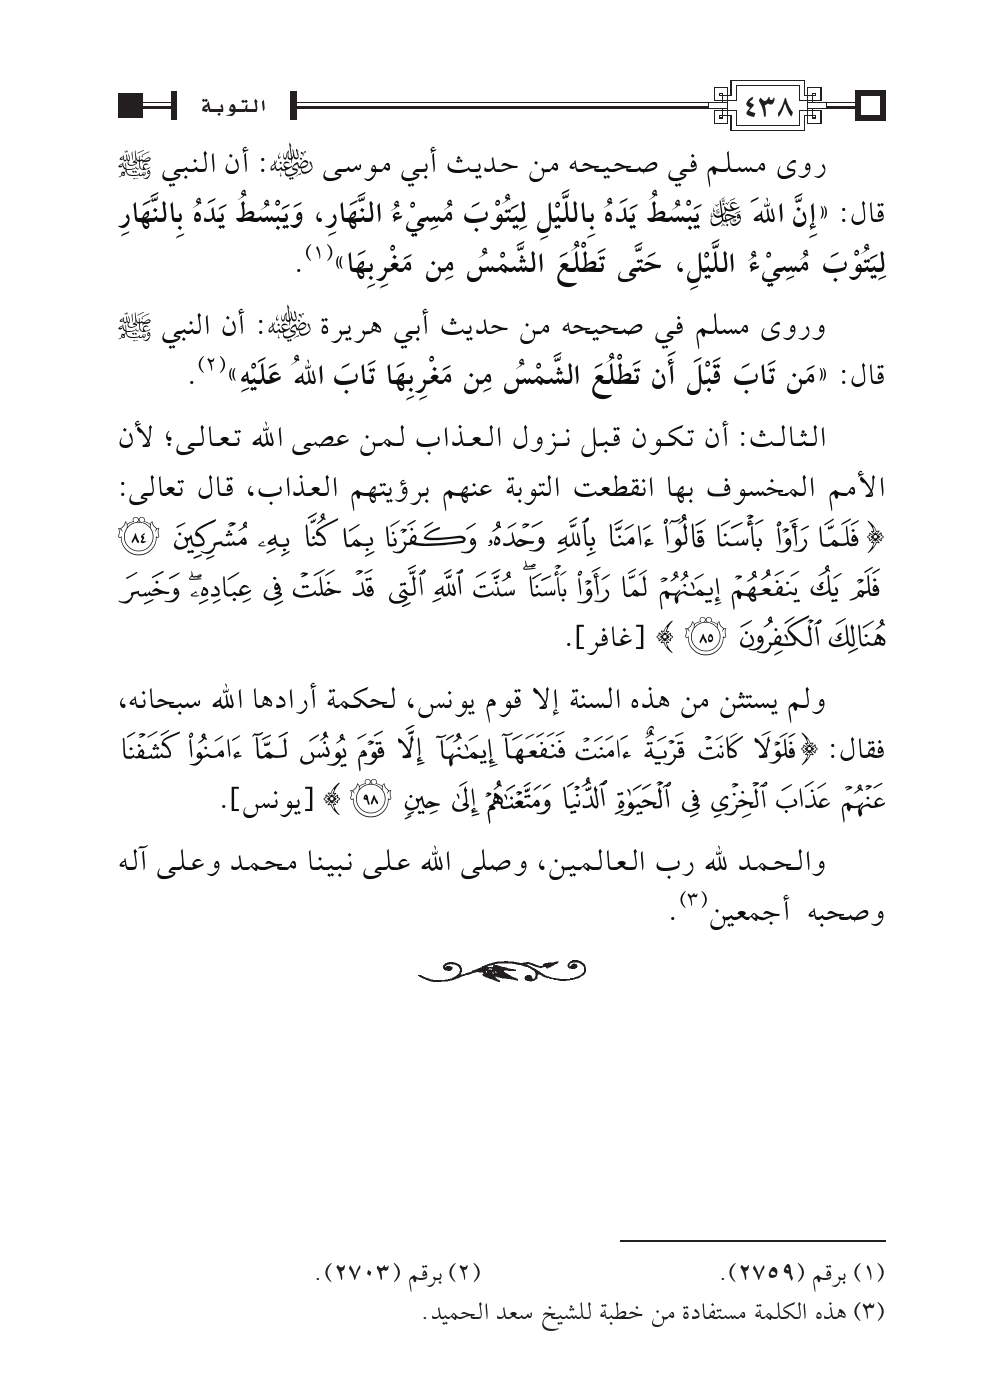 ٤٣٨
التوبة
روى مسلم في صحيحه من حديث أبي موسى رضي الله عنه: أن النبي ﷺ
قال: «إِنَّ اللهَ عز وجل يَبْسُطُ يَدَهُ بِاللَّيْلِ لِيَتُوْبَ مُسِيْءُ النَّهَارِ، وَيَبْسُطُ يَدَهُ بِالنَّهَارِ
لِيَتُوْبَ مُسِيْءُ اللَّيْلِ، حَتَّى تَطْلُعَ الشَّمْسُ مِن مَغْرِبِهَا»(١).
وروى مسلم في صحيحه من حديث أبي هريرة رضي الله عنه: أن النبي ﷺ
قال: «مَن تَابَ قَبْلَ أَن تَطْلُعَ الشَّمْسُ مِن مَغْرِبِهَا تَابَ اللهُ عَلَيْهِ»(٢).
الثالث: أن تكون قبل نزول العذاب لمن عصى الله تعالى؛ لأن
الأمم المخسوف بها انقطعت التوبة عنهم برؤيتهم العذاب، قال تعالى:
﴿فَلَمَّا رَأَوْاْ بَأْسَنَا قَالُوٓاْ ءَامَنَّا بِٱللَّهِ وَحْدَهُۥ وَكَفَرْنَا بِمَا كُنَّا بِهِۦ مُشْرِكِينَ ٨٤
فَلَمْ يَكُ يَنفَعُهُمْ إِيمَٰنُهُمْ لَمَّا رَأَوْاْ بَأْسَنَاۖ سُنَّتَ ٱللَّهِ ٱلَّتِى قَدْ خَلَتْ فِى عِبَادِهِۦۖ وَخَسِرَ
هُنَالِكَ ٱلْكَٰفِرُونَ ٨٥﴾ [غافر].
ولم يستثن من هذه السنة إلا قوم يونس، لحكمة أرادها الله سبحانه،
فقال: ﴿فَلَوْلَا كَانَتْ قَرْيَةٌ ءَامَنَتْ فَنَفَعَهَآ إِيمَٰنُهَآ إِلَّا قَوْمَ يُونُسَ لَمَّآ ءَامَنُواْ كَشَفْنَا
عَنْهُمْ عَذَابَ ٱلْخِزْىِ فِى ٱلْحَيَوٰةِ ٱلدُّنْيَا وَمَتَّعْنَٰهُمْ إِلَىٰ حِينٍ ٩٨﴾ [يونس].
والحمد لله رب العالمين، وصلى الله على نبينا محمد وعلى آله
وصحبه أجمعين(٣).
(١) برقم (٢٧٥٩). (٢) برقم (٢٧٠٣).
(٣) هذه الكلمة مستفادة من خطبة للشيخ سعد الحميد.